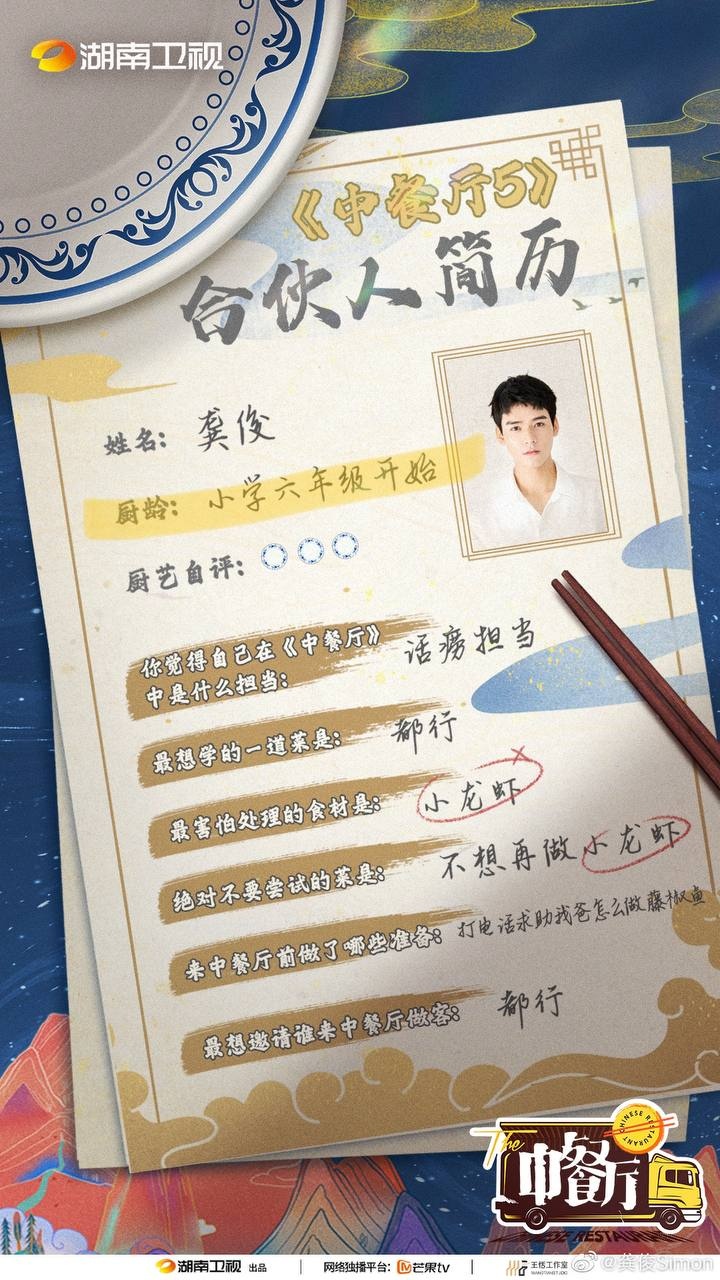 湖南卫视
《中餐厅5》
合伙人简历
姓名: 龚俊
厨龄: 小学六年级开始
厨艺自评:
你觉得自己在《中餐厅》
中是什么担当: 话痨担当
最想学的一道菜是: 都行
最害怕处理的食材是: 小龙虾
绝对不要尝试的菜是: 不想再做小龙虾
来中餐厅前做了哪些准备: 打电话求助我爸怎么做藤椒鱼
最想邀请谁来中餐厅做客: 都行
The
中餐厅
CHINESE RESTAURANT
湖南卫视 出品 | 网络独播平台: 芒果tv | 王恬工作室
@龚俊Simon